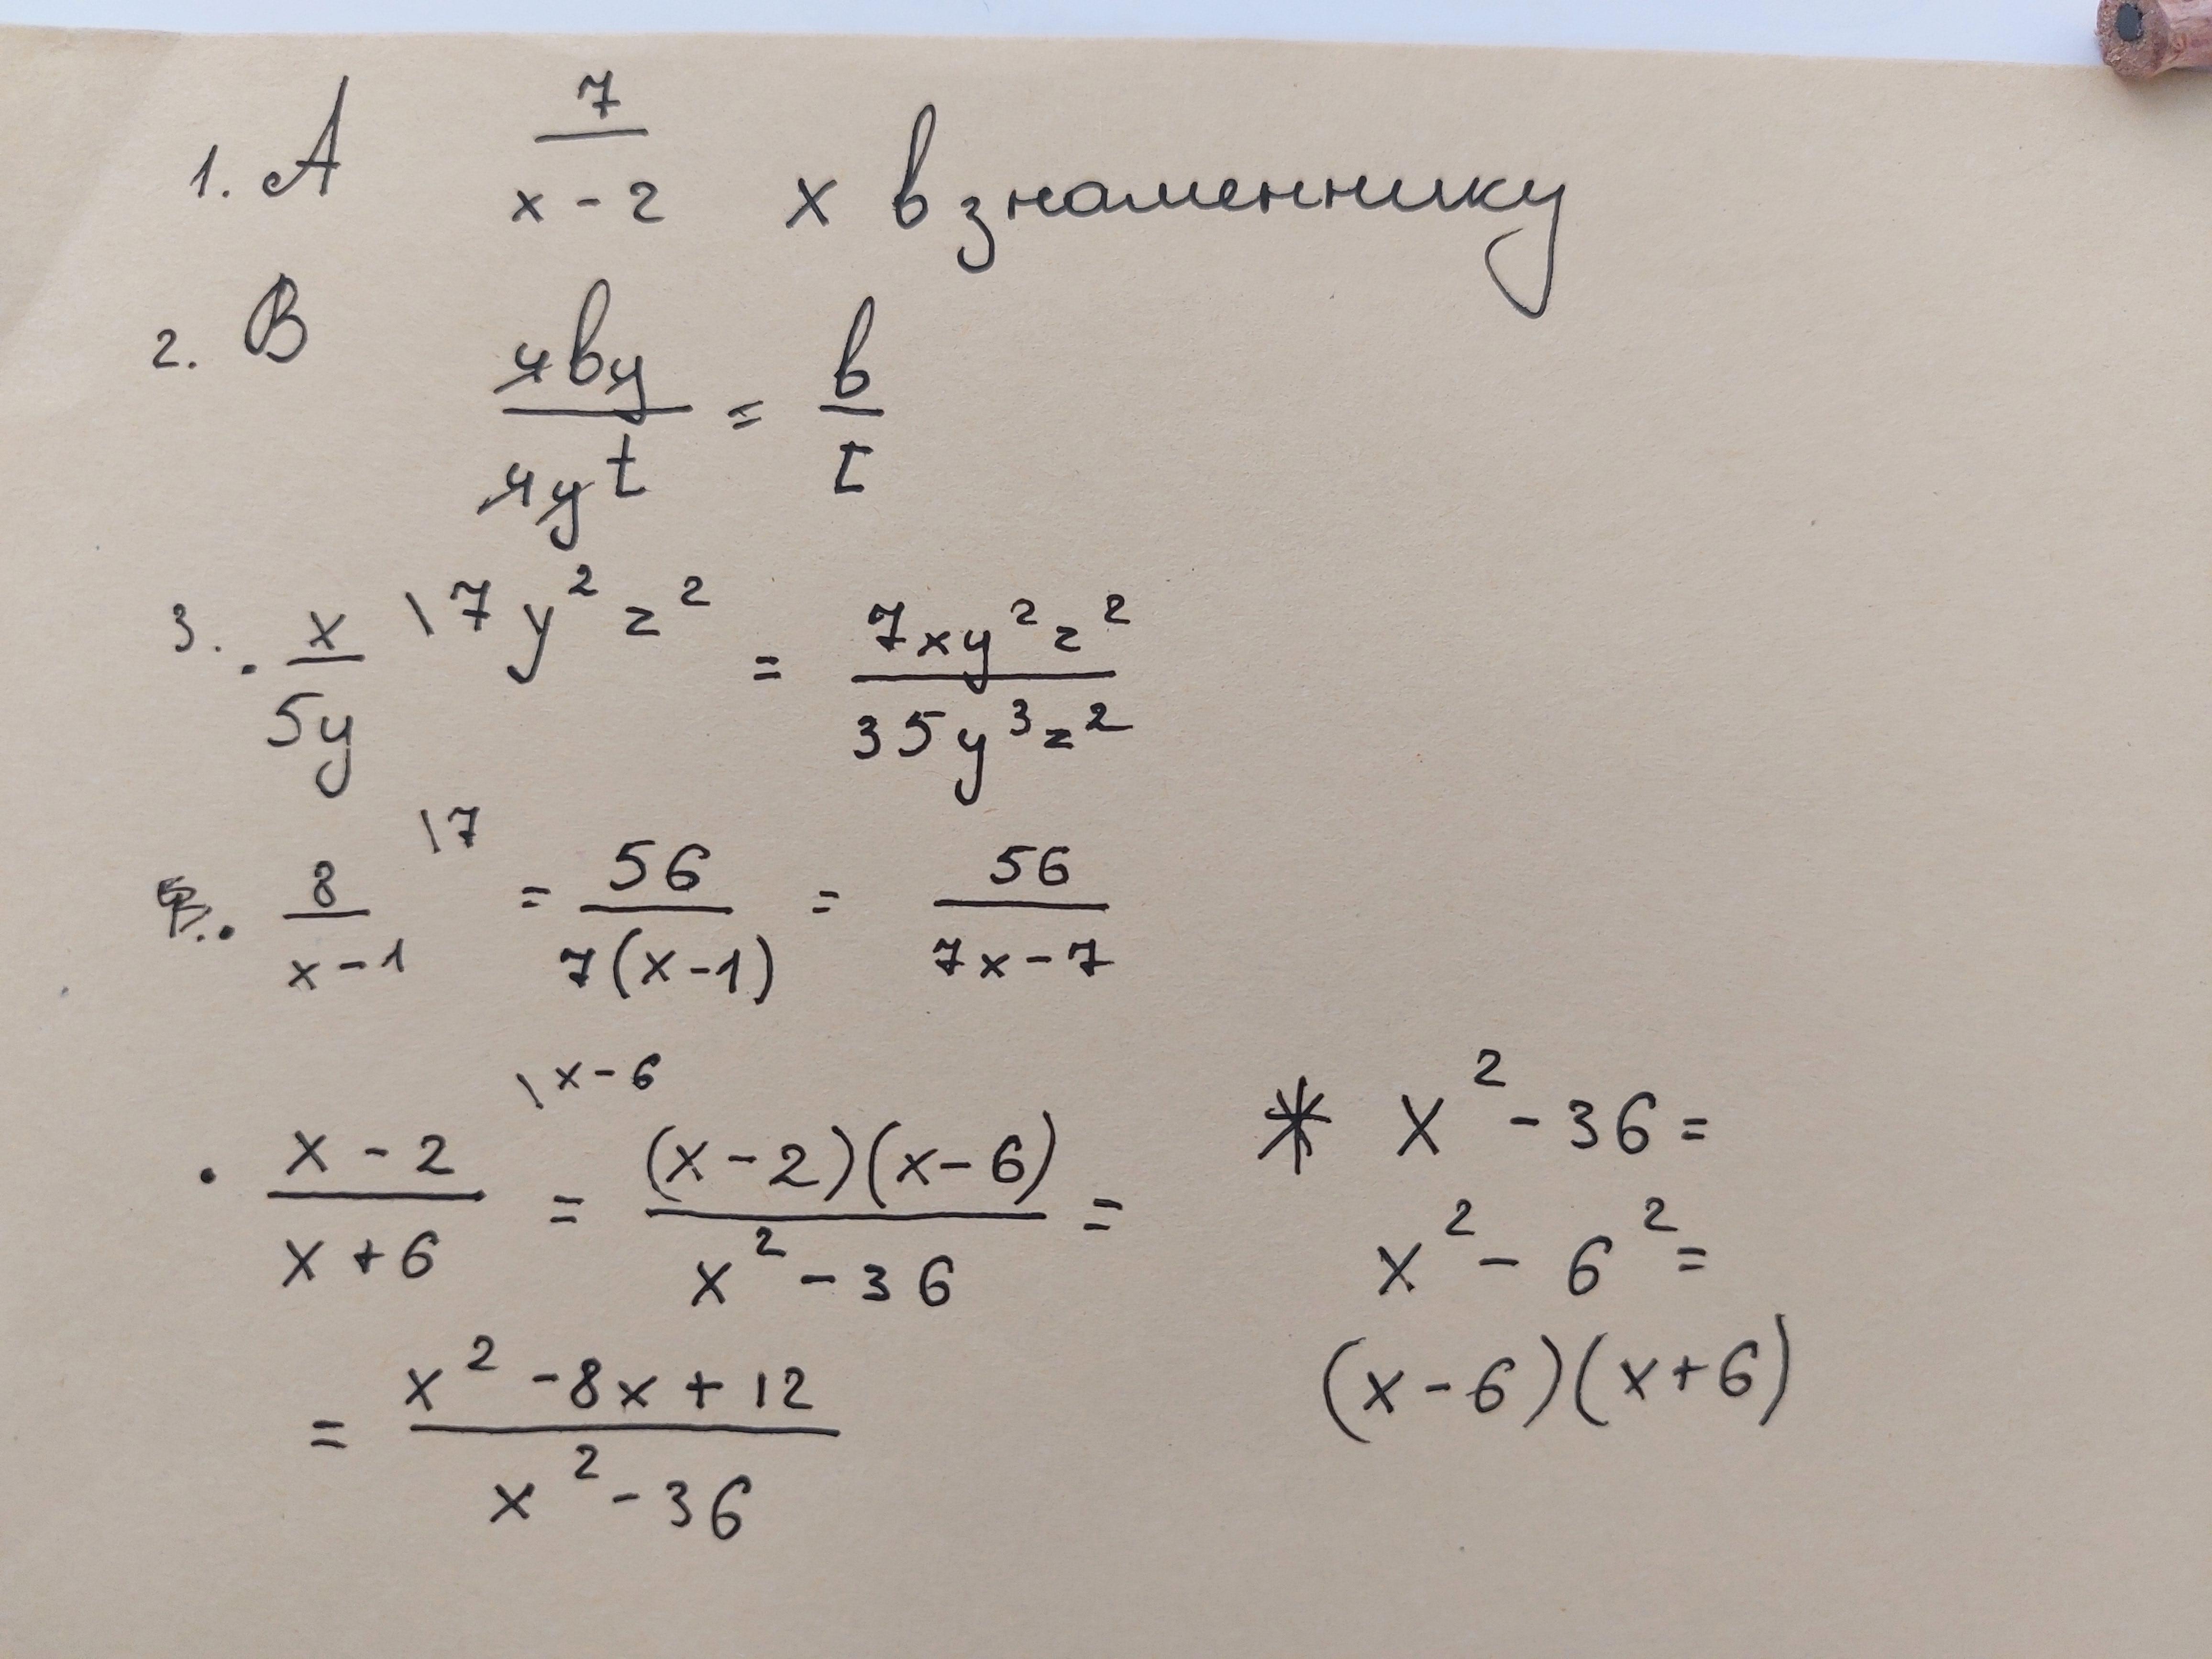 1. А 7/(x-2) x в знаменнику
2. В 4вy/4yt = в/t
3. • x/5y \7y²z² = 7xy²z²/35y³z²
• 8/(x-1) \7 = 56/7(x-1) = 56/(7x-7)
• (x-2)/(x+6) \x-6 = (x-2)(x-6)/(x²-36) =
= (x²-8x+12)/(x²-36)
* x²-36=
x²-6²=
(x-6)(x+6)